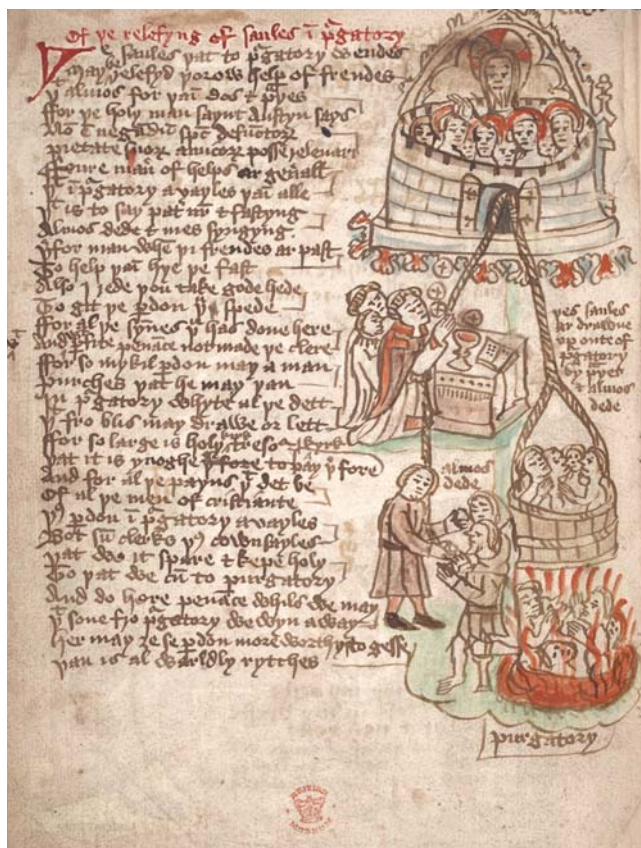 Of ye relefyng of saules i pgatory
Ye saules yat to pgatory wendes
May be relefyd yorow help of frendes
Yt almos for yaim dos & pyes
ffor ye holy man saynt Austyn says
No est negadu spc defuctor
pietate suor amicor posse relevari
ffoure man of helps ar gnall
Yt i pgatory avayles yaim alle
Yt is to say pat nr & fastyng
Almos dede & mes syngyng
Yfor man whe yi frendes ar past
To help yaim hye ye fast
Also I rede you take gode hede
To git ye pdon yt spede
ffor al ye synes yt has done here
And pfite penace not made ye clere
ffor so mykil pdon may a man
Purches yat he may yan
In pgatory whyte al ye dett
Yt fro blis may drawe or lett
ffor so large is holy kyrk tresore
Yat it is ynoghe to pay yfore
And for al ye payns yt det be
Of al ye men of cristiante
Yus pdon i pgatory avayles
Bot su clerks yus cownsayles
Yat we it spare & kepe holy
To yat we cu to purgatory
And do here penace whils we may
Yt sone fro pgatory we wyn away
Her may ze se pdon more worthy to gess
Yan is al warldly rytches
yes saules
ar drawne
up oute of
pgatory
by pyer
& almos
dede
almos
dede
purgatory
BRITISH
MUSEUM